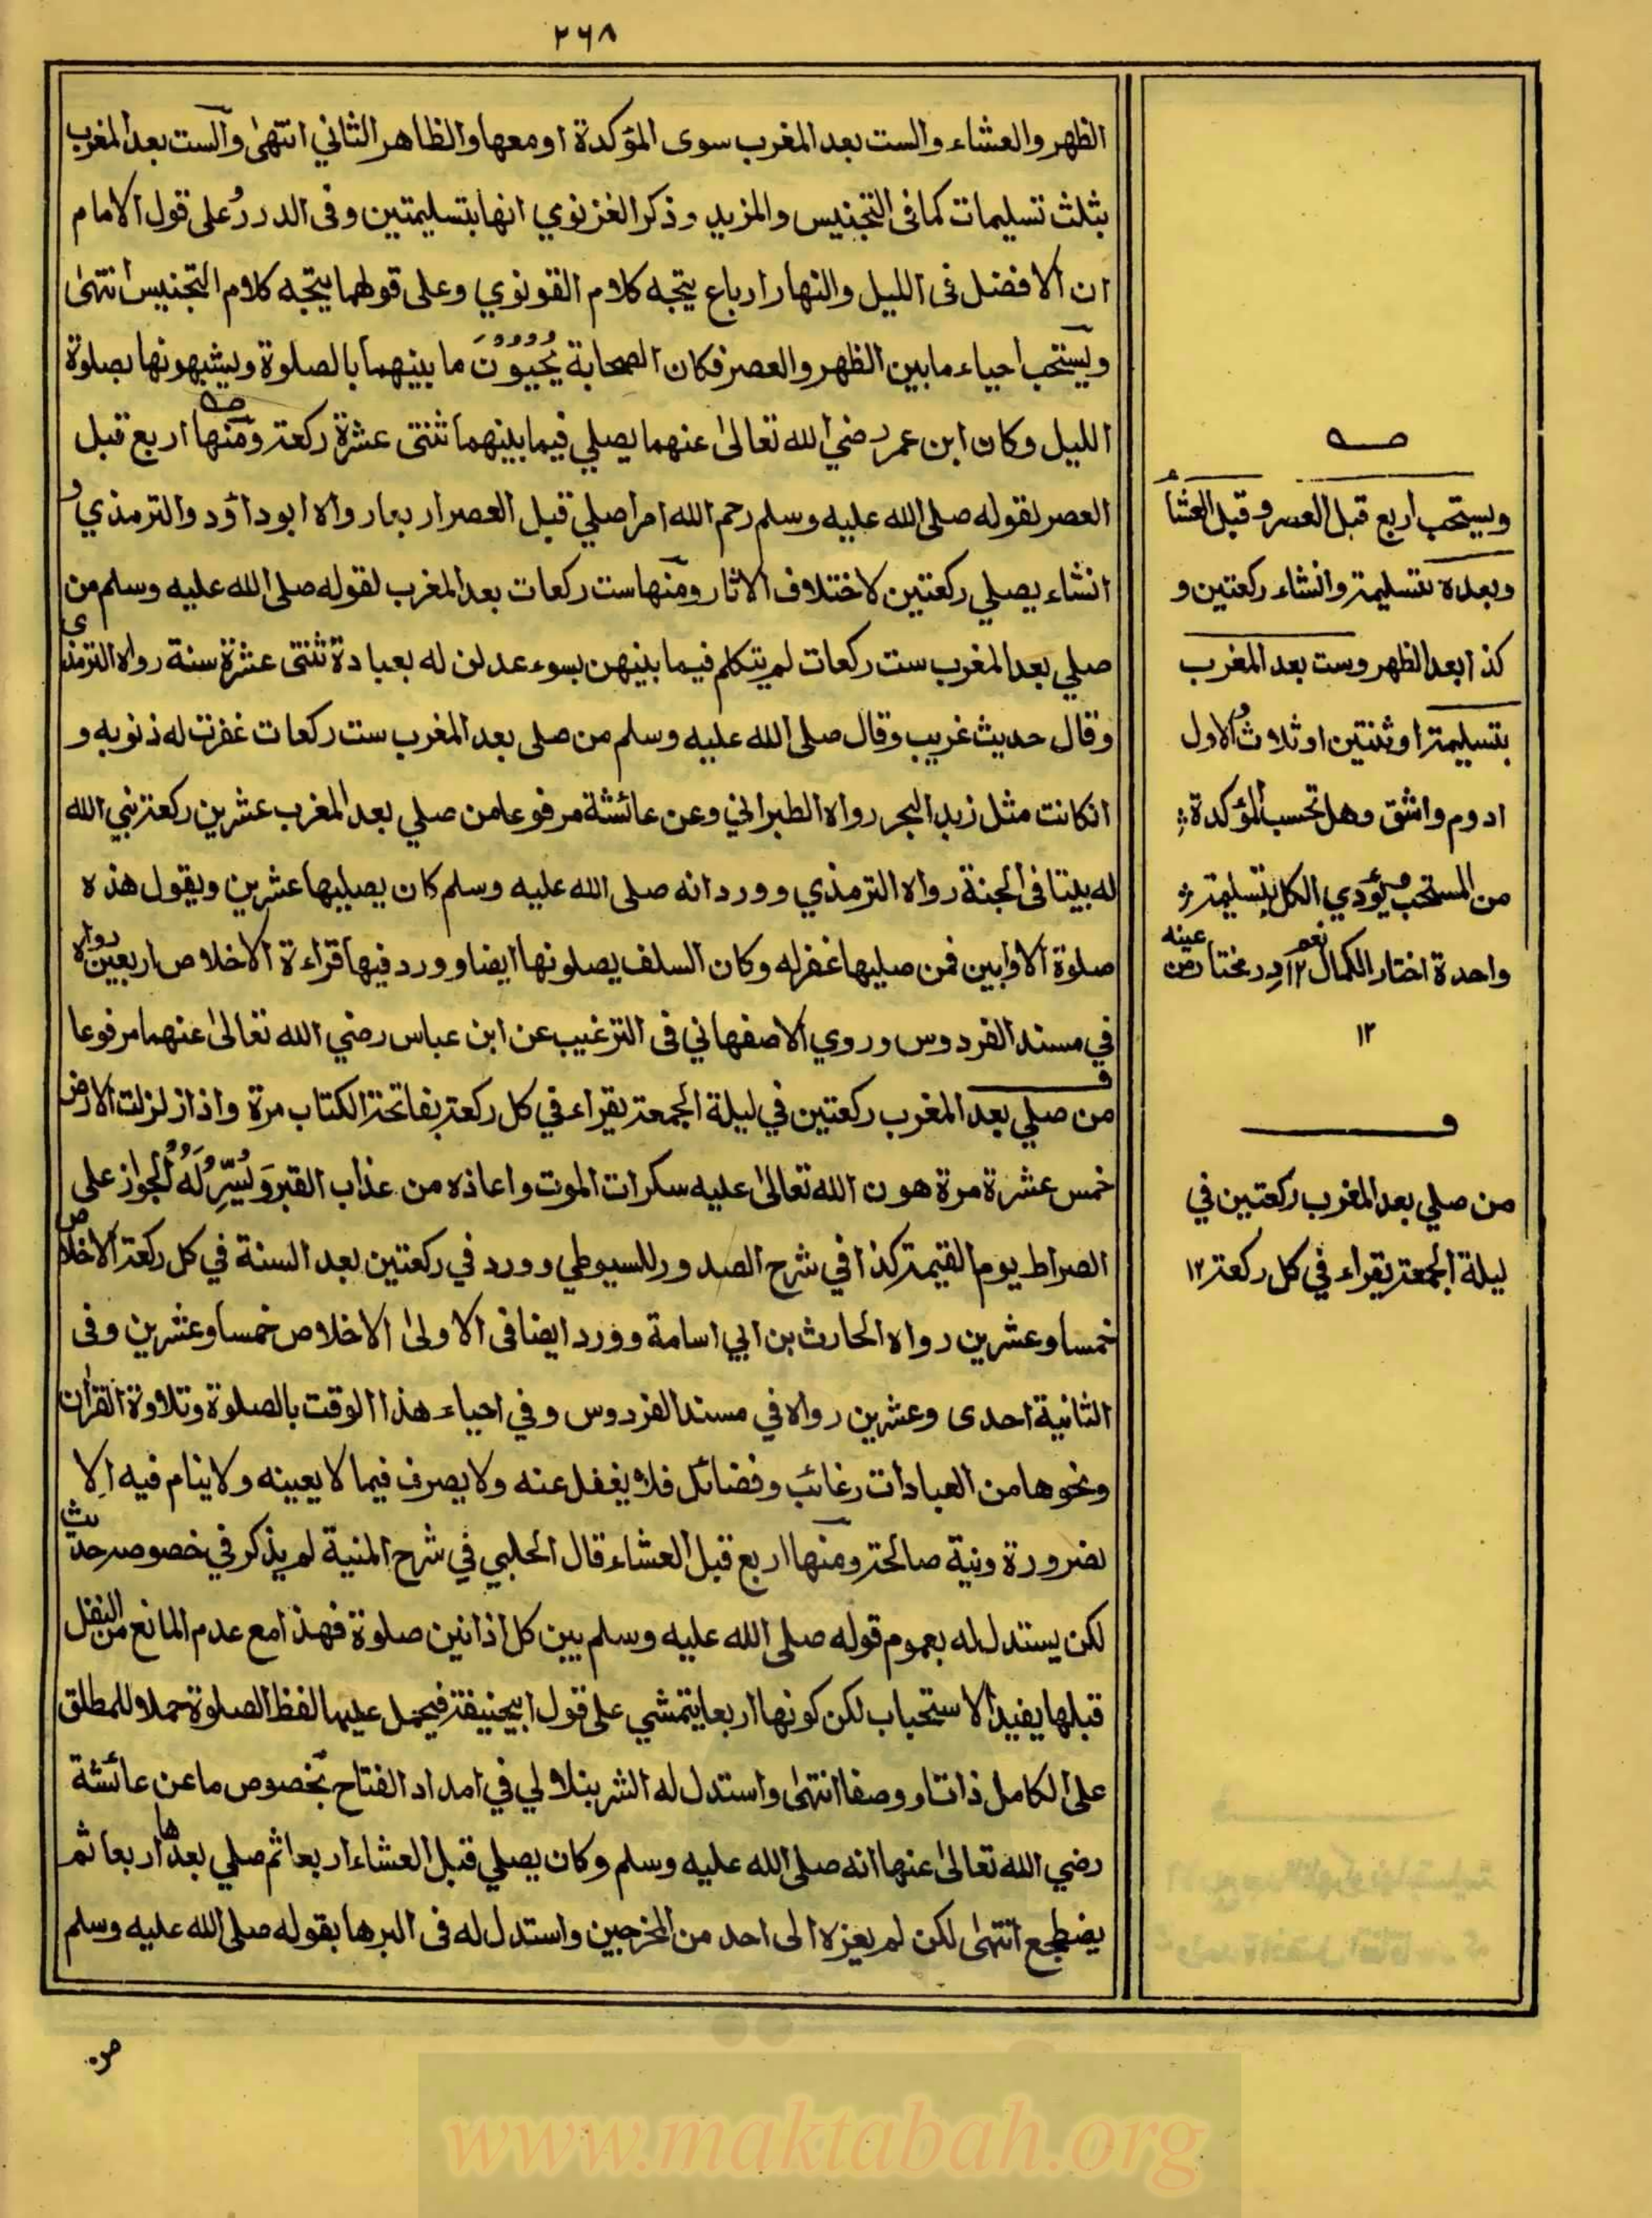 ٢٦٨
الظهر والعشاء والست بعد المغرب سوى المؤكدة او معها والظاهر الثاني انتهى والست بعد المغرب
بثلث تسليمات كما فى التجنيس والمزيد وذكر الغزنوي انها بتسليمتين وفى الدرر على قول الامام
ان الافضل فى الليل والنهار ارباع يتجه كلام القونوي وعلى قولهما يتجه كلام التجنيس انتهى
ويستحب احياء ما بين الظهر والعصر فكان الصحابة يُحْيُونَ ما بينهما بالصلوة ويشبهونها بصلوة
الليل وكان ابن عمر رضي الله تعالى عنهما يصلي فيما بينهما ثنتى عشرة ركعة ومنها اربع قبل
العصر لقوله صلى الله عليه وسلم رحم الله امرا صلي قبل العصر اربعا رواه ابو داؤد والترمذي و
انشاء يصلي ركعتين لاختلاف الاثار ومنها ست ركعات بعد المغرب لقوله صلى الله عليه وسلم من
صلي بعد المغرب ست ركعات لم يتكلم فيما بينهن بسوء عدلن له بعبادة ثنتى عشرة سنة رواه الترمذى
وقال حديث غريب وقال صلى الله عليه وسلم من صلى بعد المغرب ست ركعات غفرت له ذنوبه و
انكانت مثل زبد البحر رواه الطبراني وعن عائشة مرفوعا من صلي بعد المغرب عشرين ركعة بني الله
له بيتا فى الجنة رواه الترمذي وورد انه صلى الله عليه وسلم كان يصليها عشرين ويقول هذه
صلوة الاوابين فمن صليها غفر له وكان السلف يصلونها ايضا وورد فيها قراءة الاخلاص اربعين رواه
في مسند الفردوس وروي الاصفهاني فى الترغيب عن ابن عباس رضي الله تعالى عنهما مرفوعا
من صلي بعد المغرب ركعتين في ليلة الجمعة يقراء في كل ركعة بفاتحة الكتاب مرة واذا زلزلت الارض
خمس عشرة مرة هون الله تعالى عليه سكرات الموت واعاذه من عذاب القبر وَيُسِّرُ لَهُ الجواز على
الصراط يوم القيمة كذا في شرح الصدور للسيوطي وورد في ركعتين بعد السنة في كل ركعة الاخلاص
خمسا وعشرين رواه الحارث بن ابي اسامة وورد ايضا فى الاولى الاخلاص خمسا وعشرين وفى
الثانية احدى وعشرين رواه في مسند الفردوس وفي احياء هذا الوقت بالصلوة وتلاوة القرآن
ونحوها من العبادات رغائب وفضائل فلا يغفل عنه ولا يصرف فيما لا يعينه ولا ينام فيه الا
لضرورة ونية صالحة ومنها اربع قبل العشاء قال الحلبي في شرح المنية لم يذكر في خصوصه حديث
لكن يستدل له بعموم قوله صلى الله عليه وسلم بين كل اذانين صلوة فهذا مع عدم المانع من النفل
قبلها يفيد الاستحباب لكن كونها اربعا يتمشي على قول ابيحنيفة فيحمل عليها لفظ الصلوة حملا للمطلق
على الكامل ذاتا ووصفا انتهى واستدل له الشربنلالي في امداد الفتاح بخصوص ما عن عائشة
رضي الله تعالى عنها انه صلى الله عليه وسلم وكان يصلي قبل العشاء اربعا ثم صلي بعدها اربعا ثم
يضطجع انتهى لكن لم يعزه الى احد من المخرجين واستدل له فى البرهان بقوله صلى الله عليه وسلم
ويستحب اربع قبل العصر وقبل العشاء
وبعده بتسليمة وانشاء ركعتين و
كذا بعد الظهر وست بعد المغرب
بتسليمة او ثنتين او ثلاث والاول
ادوم واشق وهل تحسب المؤكدة
من المستحب ويؤدي الكل بتسليمة
واحدة اختار الكمال نعم ١٢ در مختار من عينه
١٢
من صلي بعد المغرب ركعتين في
ليلة الجمعة يقراء في كل ركعة ١٢
www.maktabah.org